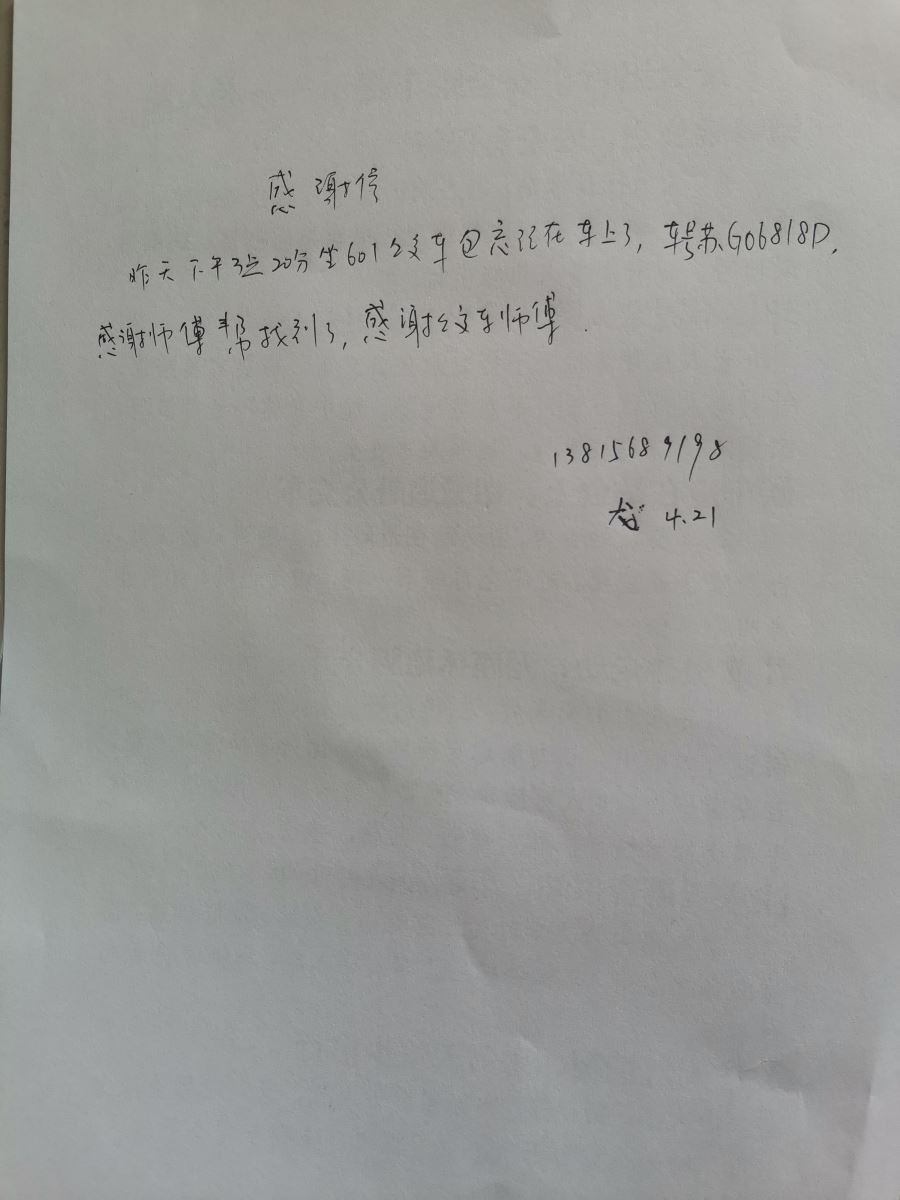 感谢信
昨天下午3点20分坐601公交车包忘记在车上了,车号苏G06818D,
感谢师傅帮找到了,感谢公交车师傅.
13815689198
4.21